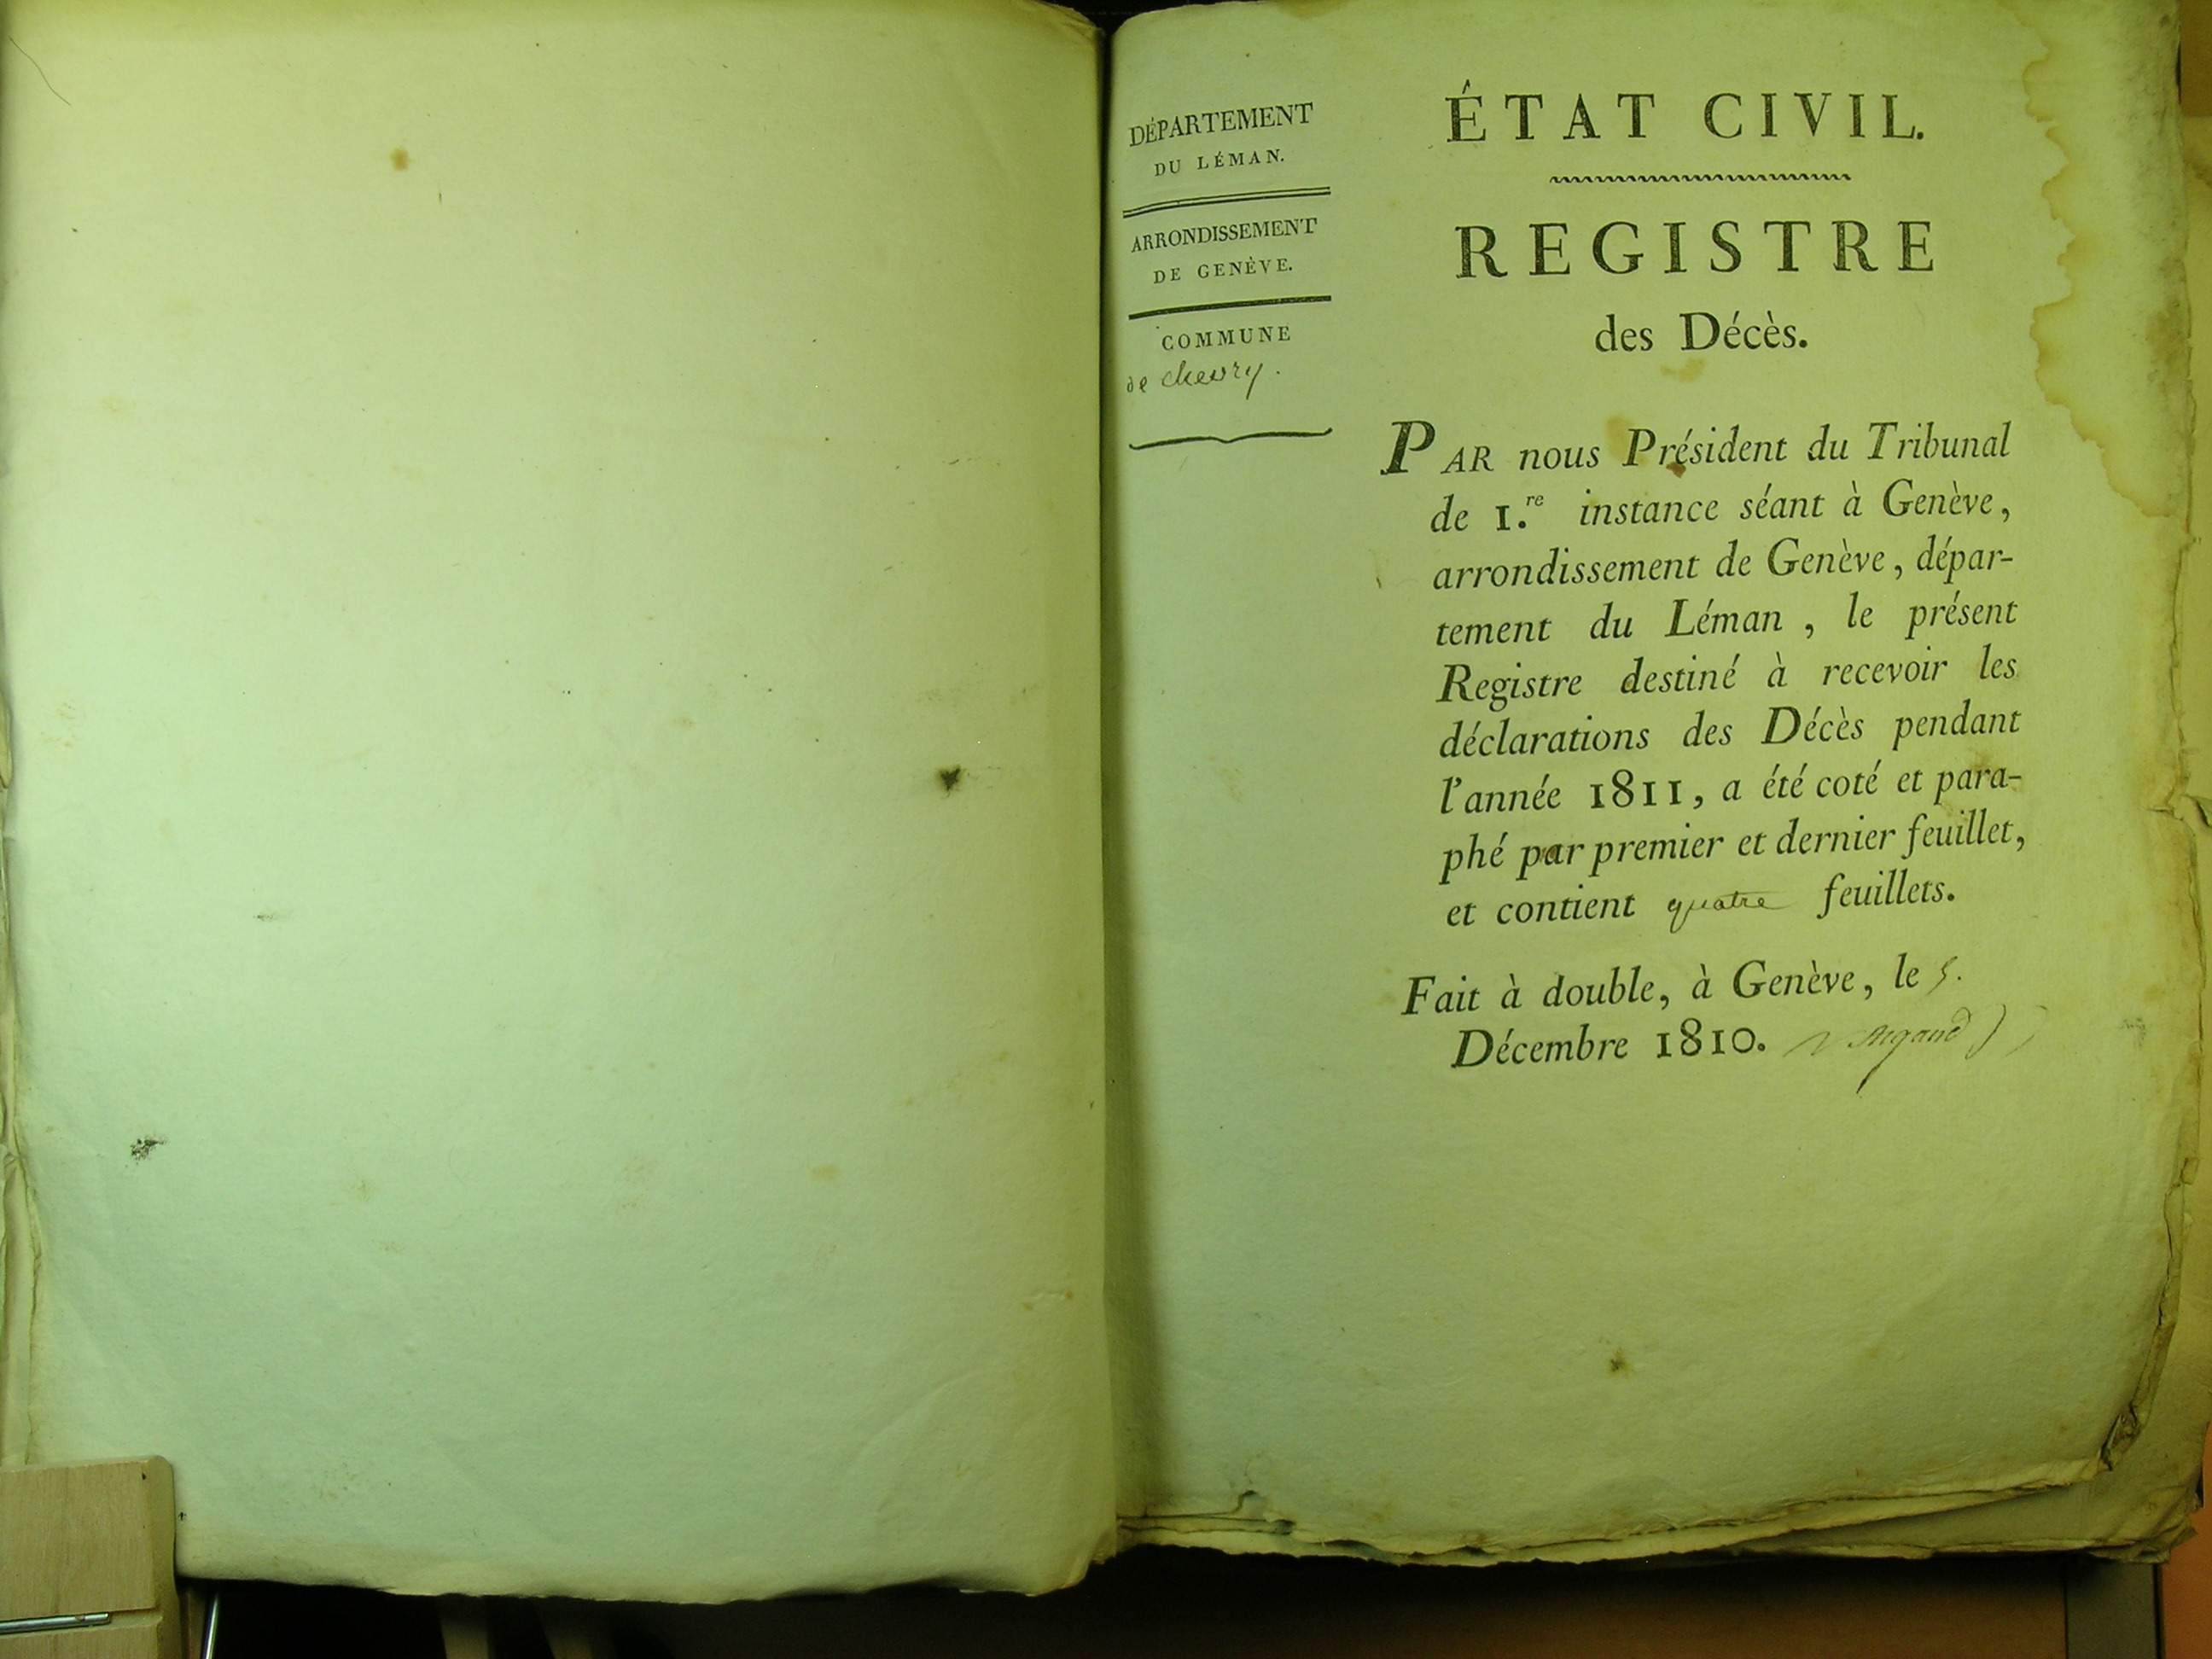 DÉPARTEMENT
DU LÉMAN.
ARRONDISSEMENT
DE GENÈVE.
COMMUNE
de chevry.
ÉTAT CIVIL.
REGISTRE
des Décès.
PAR nous Président du Tribunal
de 1.re instance séant à Genève,
arrondissement de Genève, dépar-
tement du Léman, le présent
Registre destiné à recevoir les
déclarations des Décès pendant
l'année 1811, a été coté et para-
phé par premier et dernier feuillet,
et contient quatre feuillets.
Fait à double, à Genève, le 5.
Décembre 1810. Argand